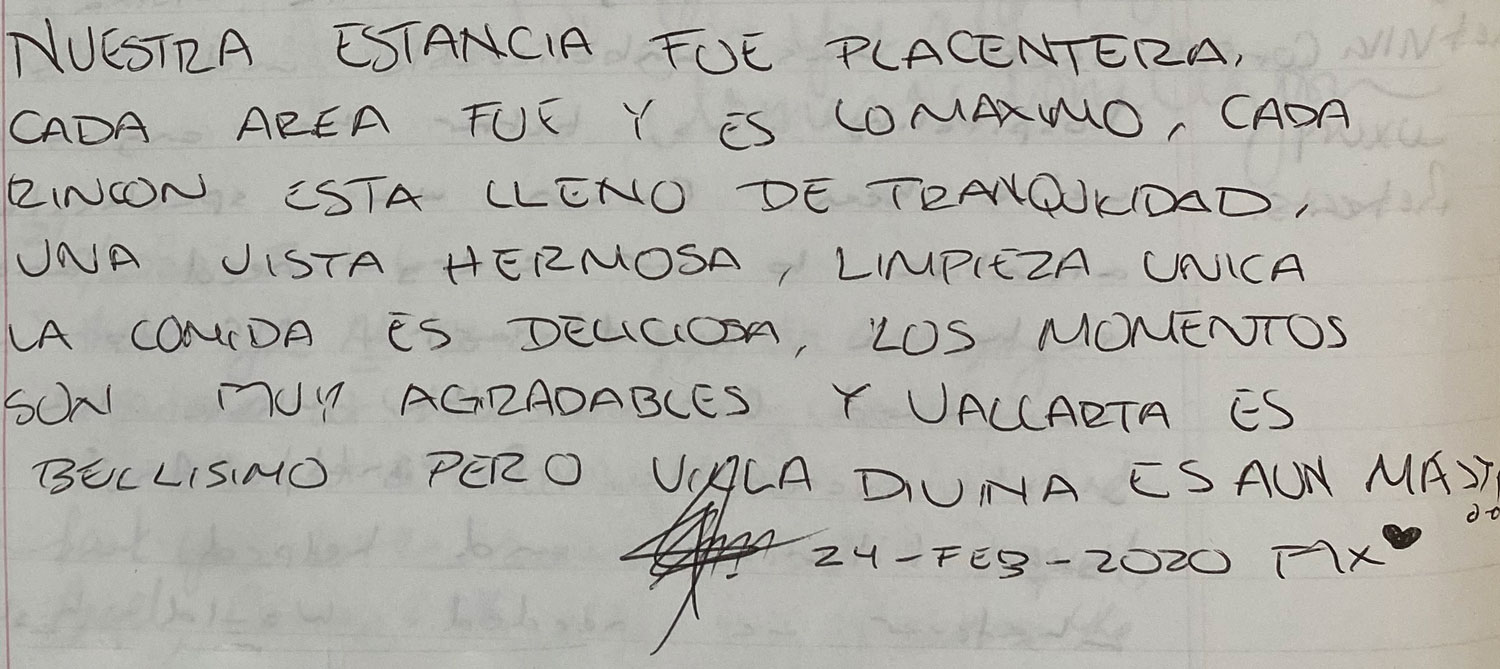 NUESTRA ESTANCIA FUE PLACENTERA,
CADA AREA FUE Y ES LO MAXIMO, CADA
RINCON ESTA LLENO DE TRANQUILIDAD,
UNA VISTA HERMOSA, LIMPIEZA UNICA
LA COMIDA ES DELICIOSA, LOS MOMENTOS
SON MUY AGRADABLES Y VALLARTA ES
BELLISIMO PERO VILLA DIVINA ES AUN MAS
24-FEB-2020 MX